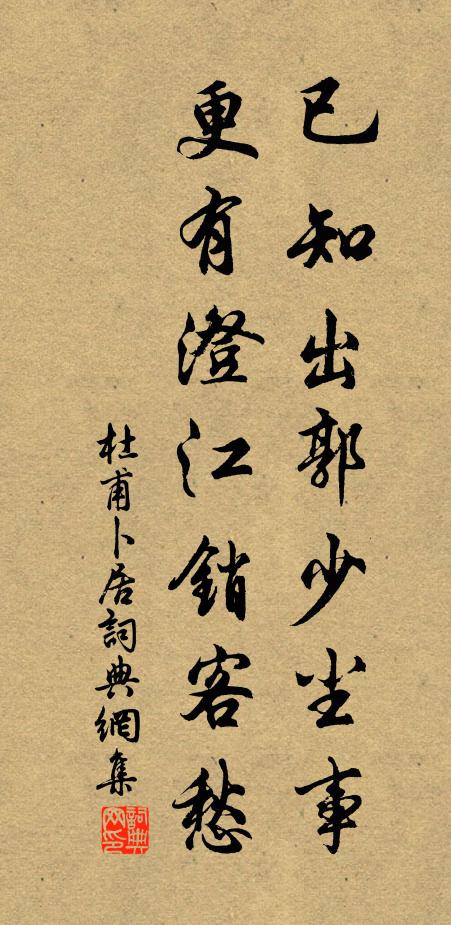 已知出郭少尘事
更有澄江銷客愁
杜甫卜居詞典網集
詞典網印